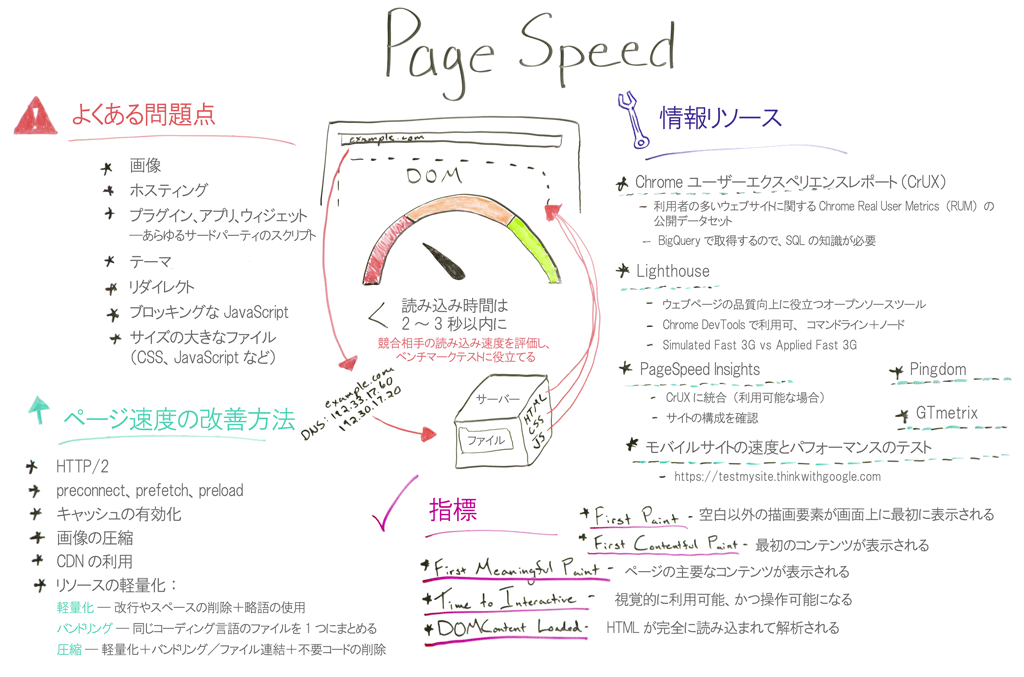 Page Speed
よくある問題点
画像
ホスティング
プラグイン、アプリ、ウィジェット
—あらゆるサードパーティのスクリプト
テーマ
リダイレクト
ブロッキングな JavaScript
サイズの大きなファイル
（CSS、JavaScript など）
ページ速度の改善方法
HTTP/2
preconnect、prefetch、preload
キャッシュの有効化
画像の圧縮
CDN の利用
リソースの軽量化：
軽量化 — 改行やスペースの削除＋略語の使用
バンドリング — 同じコーディング言語のファイルを 1 つにまとめる
圧縮 — 軽量化＋バンドリング／ファイル連結＋不要コードの削除
example.com
DOM
< 読み込み時間は
2 ～ 3 秒以内に
競合相手の読み込み速度を評価し、
ベンチマークテストに役立てる
example.com
DNS: 192.33.17.60
192.30.17.20
サーバー
ファイル
HTML
CSS
JS
情報リソース
Chrome ユーザーエクスペリエンスレポート（CrUX）
– 利用者の多いウェブサイトに関する Chrome Real User Metrics（RUM）の
公開データセット
– BigQuery で取得するので、SQL の知識が必要
Lighthouse
– ウェブページの品質向上に役立つオープンソースツール
– Chrome DevTools で利用可、 コマンドライン＋ノード
– Simulated Fast 3G vs Applied Fast 3G
PageSpeed Insights
– CrUX に統合（利用可能な場合）
– サイトの構成を確認
Pingdom
GTmetrix
モバイルサイトの速度とパフォーマンスのテスト
– https://testmysite.thinkwithgoogle.com
指標
First Paint - 空白以外の描画要素が画面上に最初に表示される
First Contentful Paint - 最初のコンテンツが表示される
First Meaningful Paint - ページの主要なコンテンツが表示される
Time to Interactive - 視覚的に利用可能、かつ操作可能になる
DOMContent Loaded - HTML が完全に読み込まれて解析される